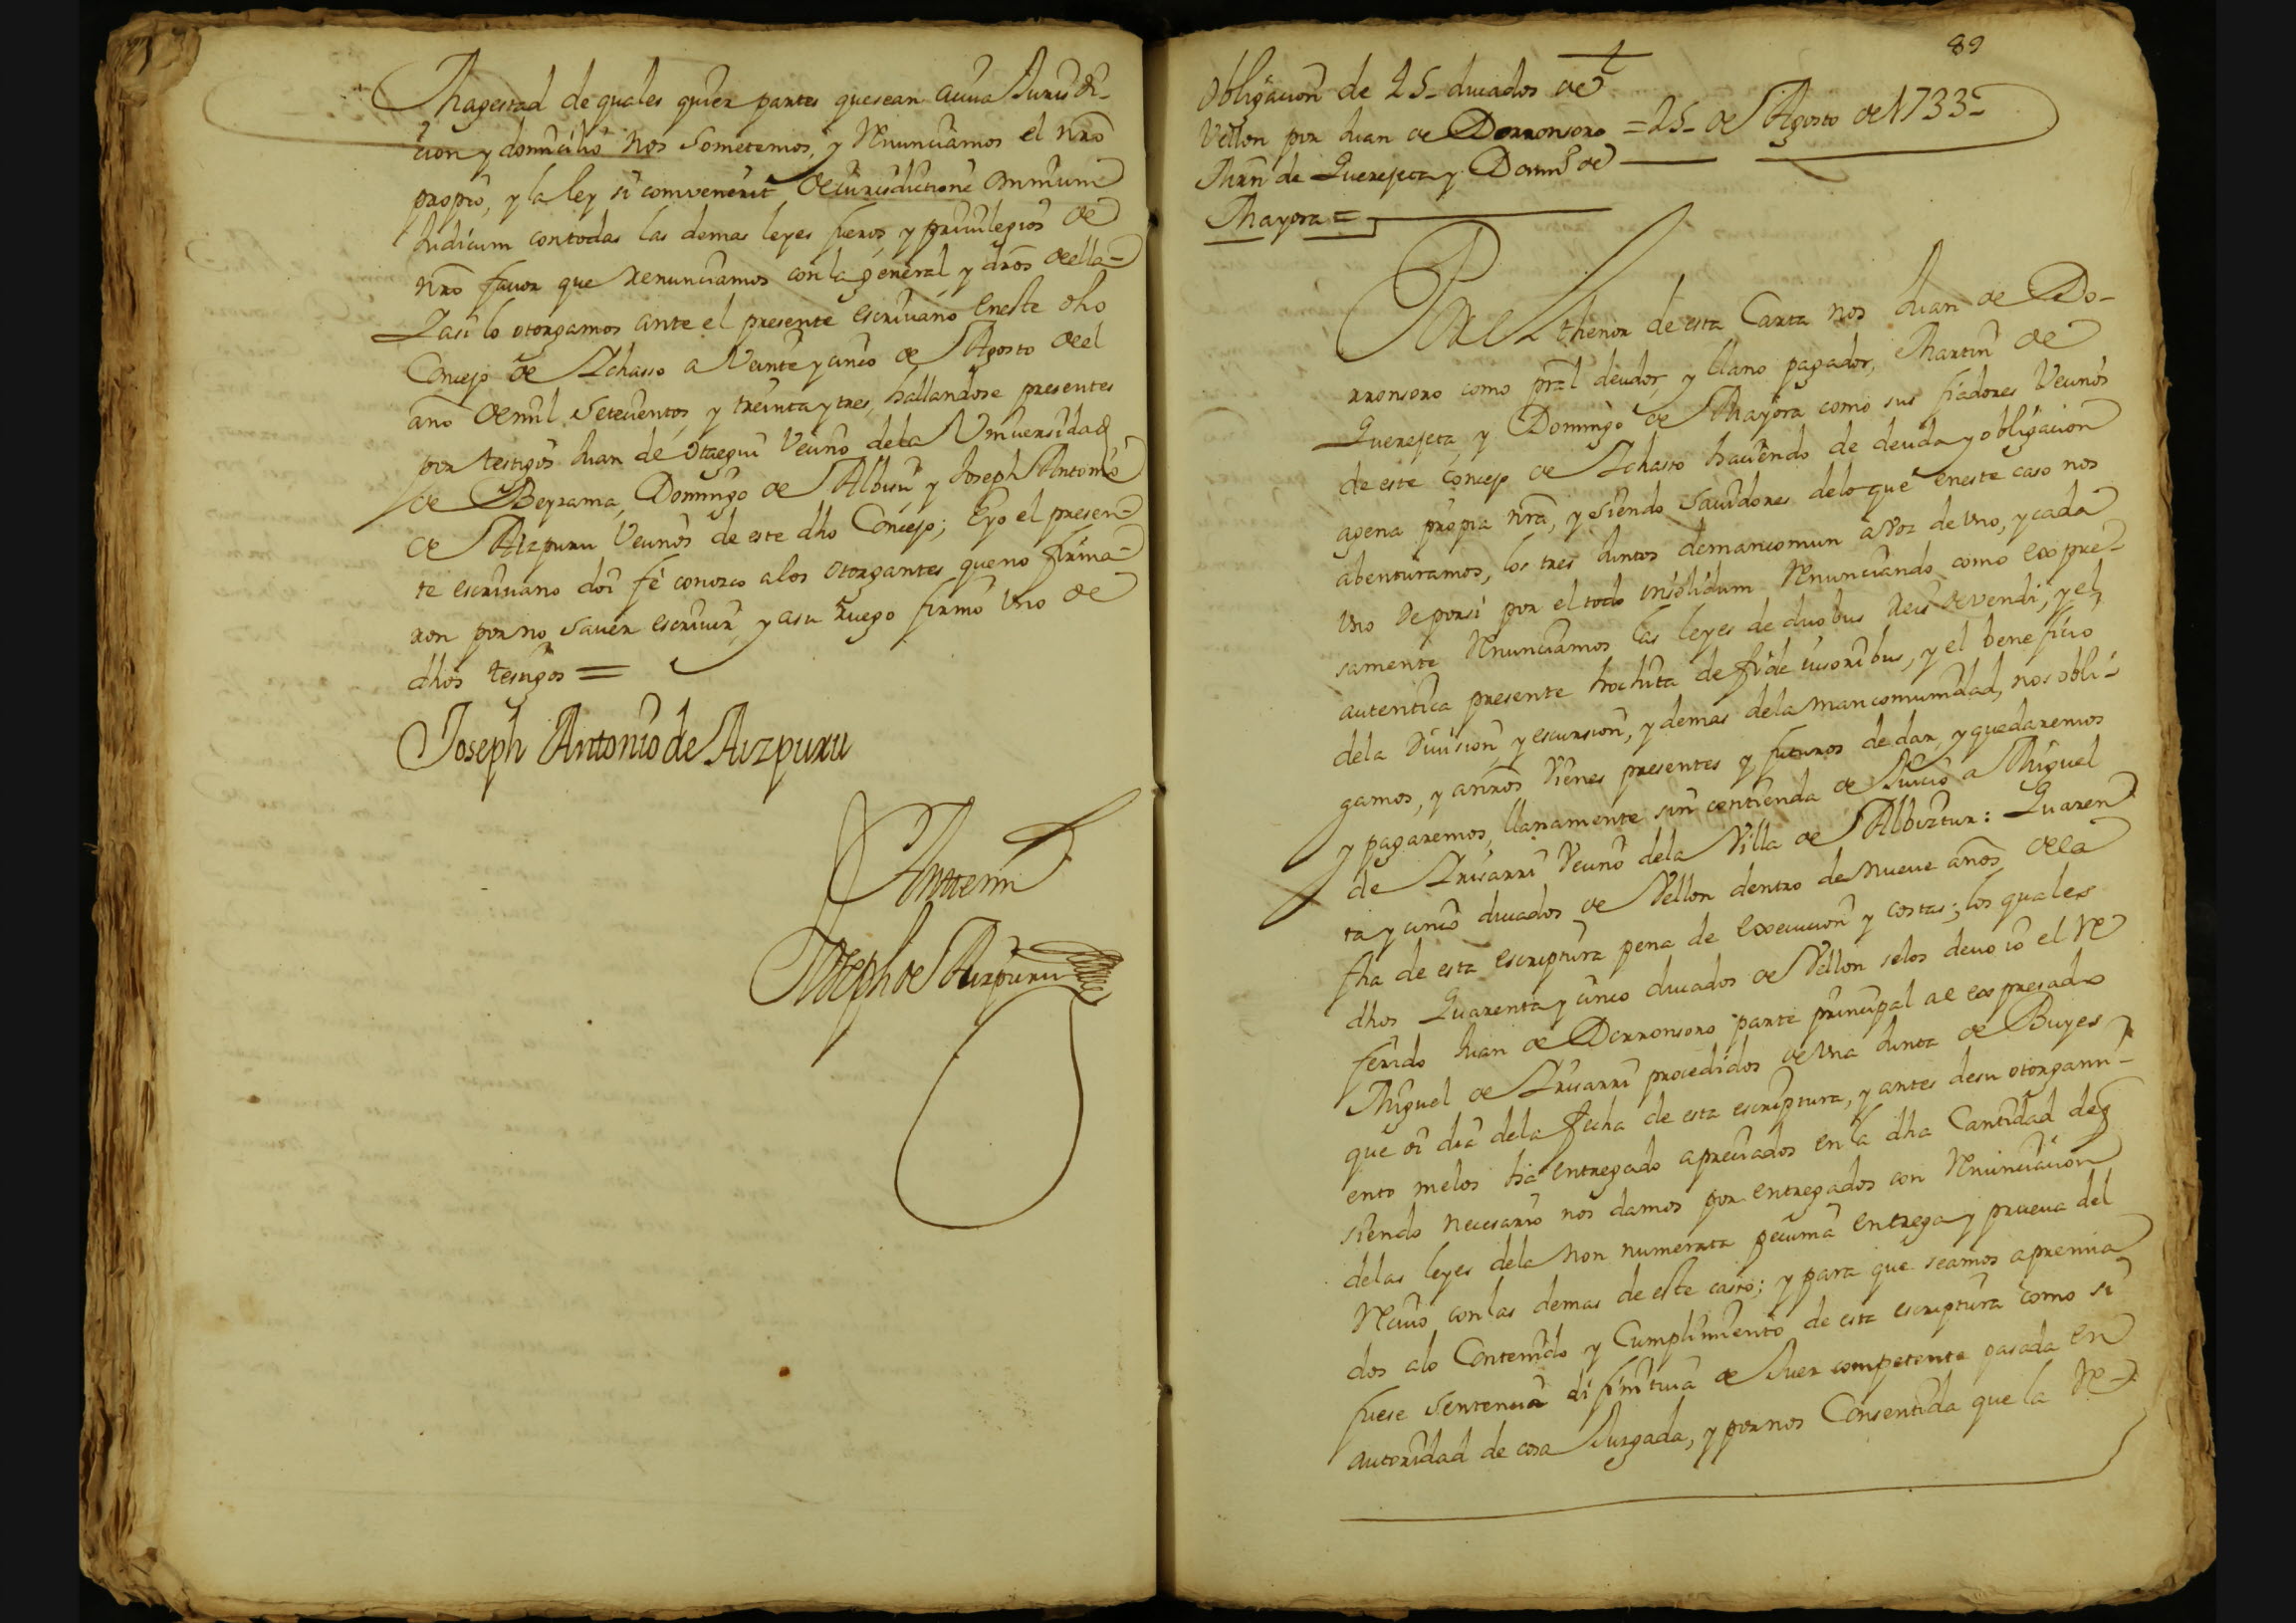 Magestad de quales quier partes que sean acuia Jurisdi-
cion y domicilio nos sometemos, y Renunciamos el nrõ
propio, y la ley si comvenerit de iurisdictione omnium
Judicum con todas las demas leyes fueros y privilegios de
nrõ favor que renunciamos con la general y drõs della =
I asi lo otorgamos ante el presente escrivano en este dho
Concejo de Ichasso a Veinte y cinco de Agosto de el
año de mil Setecientos y treinta y tres, hallandose presentes
por testigos Juan de Otaegui Vecino de la Vniversidad
de Beyzama, Domingo de Albisu y Joseph Antonio
de Aizpuru Vecinos de este dho Concejo; E yo el presen-
te escrivano doi fé conozco a los otorgantes que no firma-
ron por no saver escrivir, y a su ruego firmó Vno de
dhos testigos =
Joseph Antonio de Aizpuru
Ante mi
Joseph de Aizpuru
89
Obligacion de 25 ducados de
Vellon por Juan de Dorronsoro = 25 de Agosto de 1733
Mrñ de Querejeta y Domº de
Mayora =
Por el thenor de esta Carta nos Juan de Do-
rronsoro como pral deudor, y llano pagador, Martin de
Querejeta y Domingo de Mayora como sus fiadores Vecinos
de este Concejo de Ichasso haciendo de deuda y obligacion
agena propia nrã, y siendo savidores de lo que en este caso nos
abenturamos, los tres Juntos demancomun a Voz de Vno, y cada
Vno de por si por el todo insolidum Renunciando como expre-
samente Renunciamos las leyes de duobus Reis devendi, y el
autentica presente hochita de fide iusoribus, y el beneficio
de la Division, y escursion, y demas de la mancomunidad, nos obli-
gamos, y a nrõs Vienes presentes y futuros de dar, y que daremos
y pagaremos, llanamente sin contienda de Juicio a Miguel
de Irisarri Vecino de la Villa de Albiztur: Quaren
ta y cinco ducados de Vellon dentro de nueve años de la
fha de esta escriptura pena de execucion y costas; los quales
dhos Quarenta y cinco ducados de Vellon selos devo io el Re
ferido Juan de Dorronsoro parte principal al expresado
Miguel de Irisarri procedidos de Vna Junta de Buyes
que oi dia de la fecha de esta escriptura, y antes de su otorgami-
ento melos ha entregado apreciados en la dha Cantidad de q
siendo necesario nos damos por entregados con Renunciacion
de las leyes de la non numerata pecunia entrega y prueva del
Recivo con las demas de este casso; y para que seamos apremia
dos alo Contenido y Cumplimiento de esta escriptura como si
fuese sentencia difinitiva de Juez competente pasada en
autoridad de cosa Juzgada, y por nos Consentida que la Re-